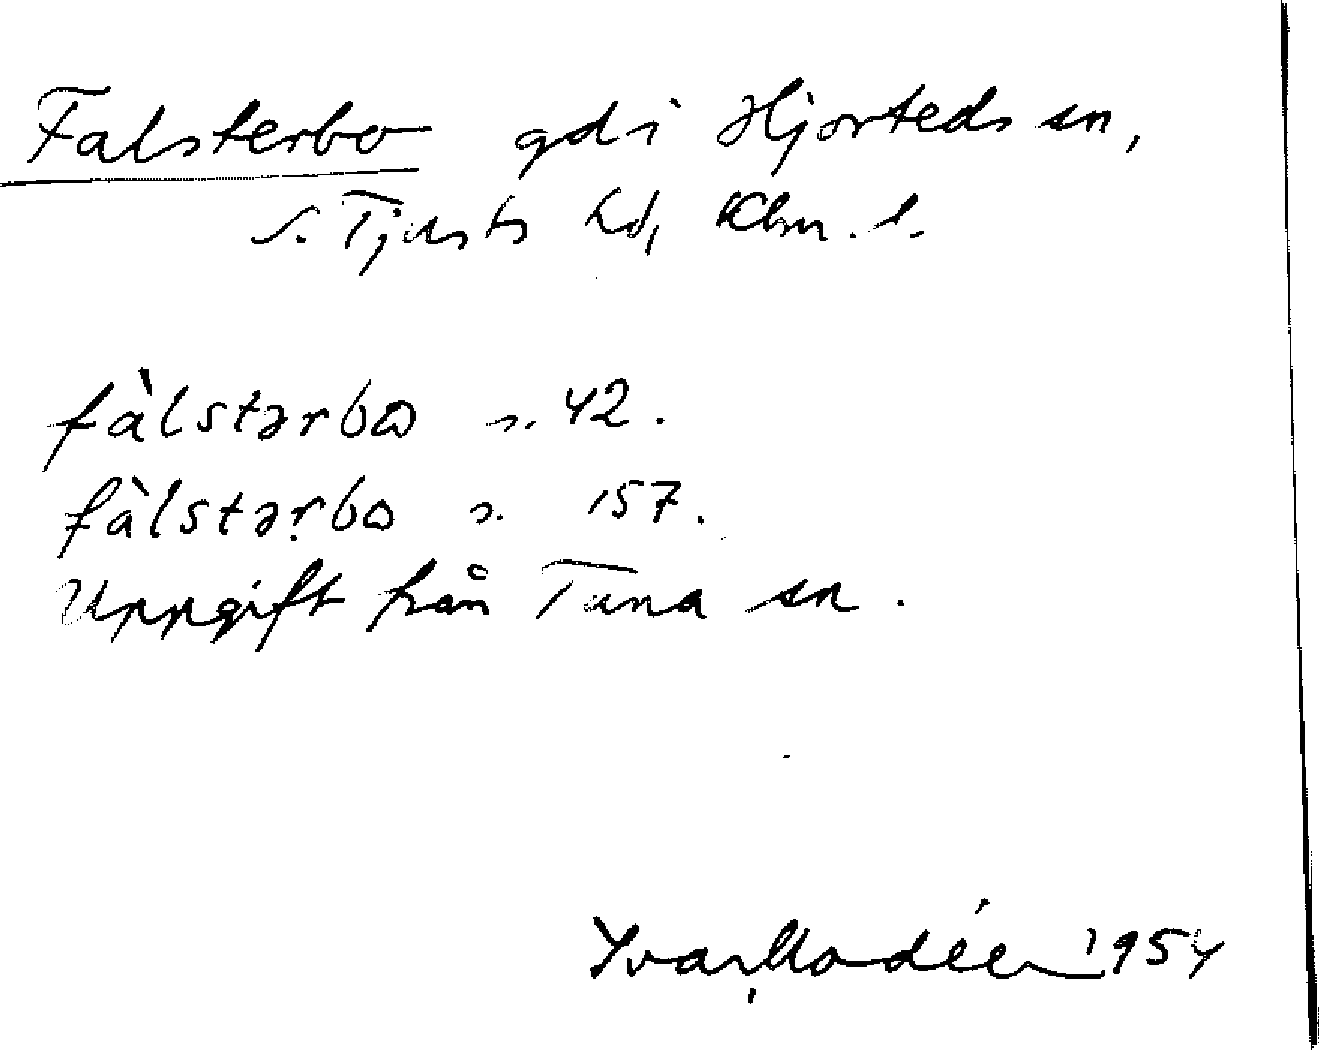 Falsterbo gd i Hjorteds sn,
S. Tjusts hd, Klm. l.
fàlstərbω s. 42.
fàlstəṛbω s. 157.
Uppgift från Tuna sn.
Ivar Modéer 1954